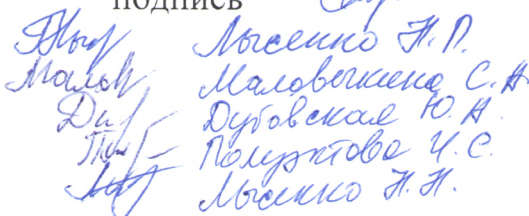 подпись
Лысенко Н.П.
Маловичкина С.А
Дубовская Ю.А.
Полуэктова И.С.
Лысенко Н.Н.